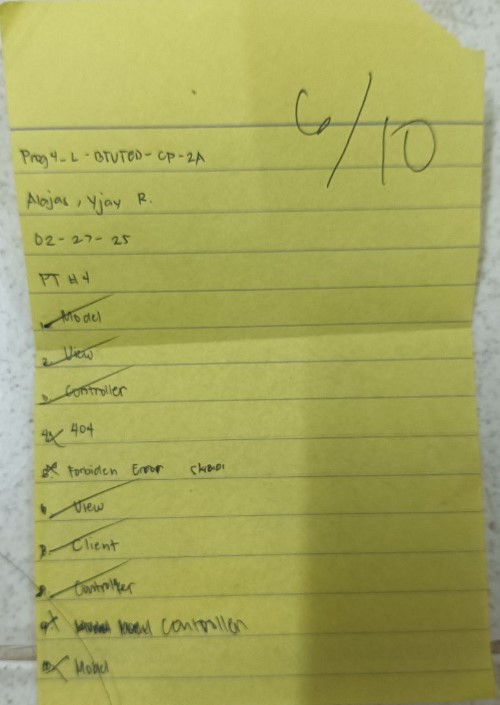 6/10
Prog4-L-BTVTED-CP-2A
Alajas, Yjay R.
02-27-25
PT #4
1. Model
2. View
3. Controller
4. 404
5. Forbiden Error
6. View
7. Client
8. Controller
9. Controller
10. Model